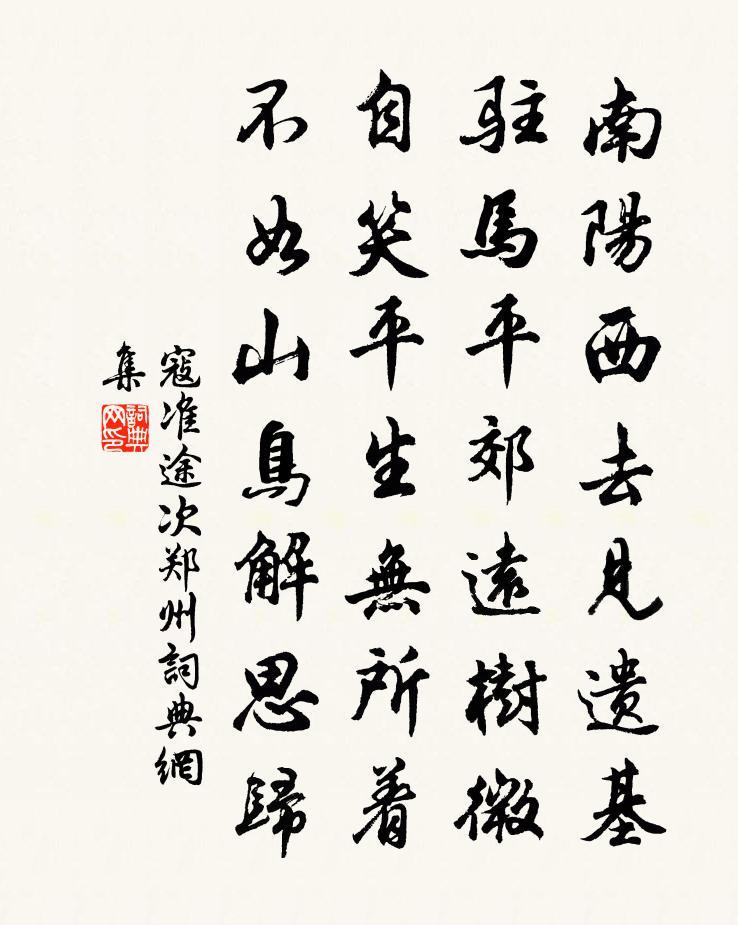 南陽西去見遺基
駐馬平郊遠樹微
自笑平生無所着
不如山鳥解思歸
寇准途次郑州詞典網
集
詞典
网印